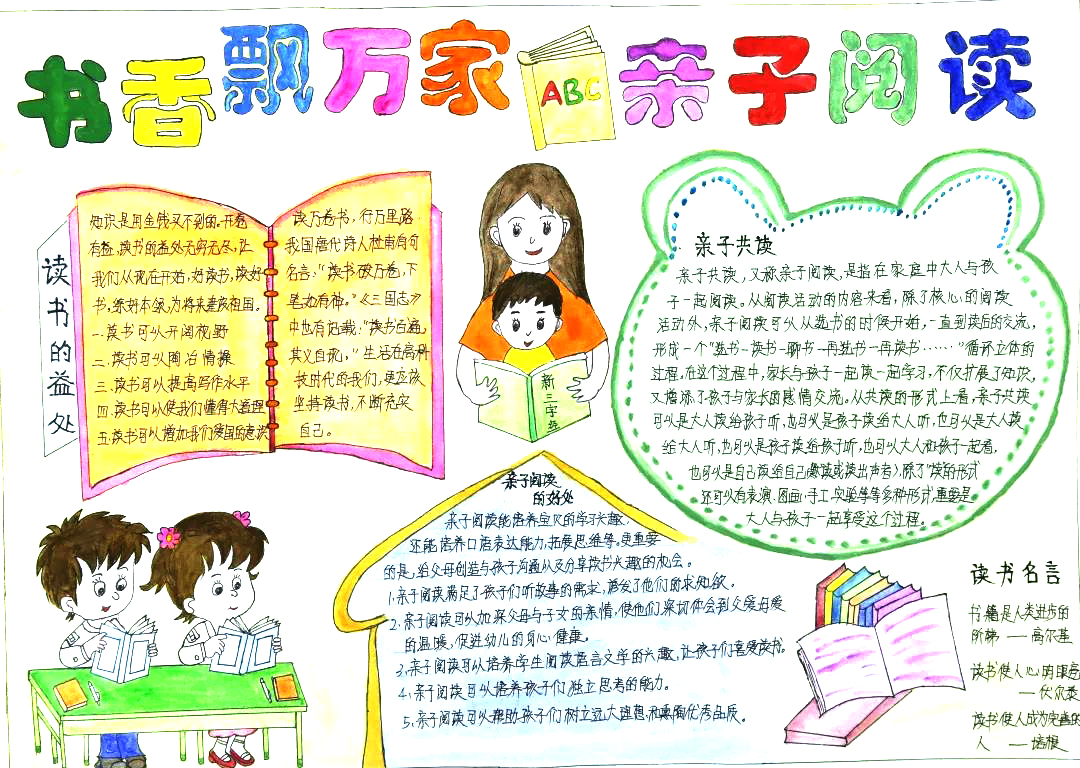 书香飘万家 ABC 亲子阅读
读书的益处
知识是用金钱买不到的。开卷
有益，读书的益处无穷无尽，让
我们从现在开始，好读书，读好
书，练好本领，为将来建设祖国。
一.读书可以开阔视野
二.读书可以陶冶情操
三.读书可以提高写作水平
四.读书可以使我们懂得大道理
五.读书可以增加我们爱国的意识
读万卷书，行万里路
我国唐代诗人杜甫的句
名言，“读书破万卷，下
笔如有神。”《三国志》
中也有记载：“读书百遍，
其义自见，”生活在高科
技时代的我们，更应该
坚持读书，不断充实
自己。
新三字经
亲子共读
亲子共读，又称亲子阅读，是指在家庭中大人与孩
子一起阅读。从阅读活动的内容来看，除了核心的阅读
活动外，亲子阅读可以从选书的时候开始，一直到读后的交流，
形成一个“选书—读书—聊书—再选书—再读书……”循环立体的
过程。在这个过程中，家长与孩子一起读一起学习，不仅扩展了知识，
又增添了孩子与家长的感情交流。从共读的形式上看，亲子共读
可以是大人读给孩子听，也可以是孩子读给大人听，也可以是大人读
给大人听，也可以是孩子读给孩子听，也可以大人和孩子一起看，
也可以是自己读给自己(默读或读出声者)，除了“读的形式
还可以有表演、图画、手工、实验等等多种形式，重要是
大人与孩子一起享爱这个过程。
亲子阅读
的好处
亲子阅读能培养宝贝的学习兴趣，
还能培养口语表达能力，拓展思维等。更重要
的是，给父母创造与孩子沟通以及分享读书兴趣的机会。
1.亲子阅读满足了孩子们听故事的需求，激发了他们的求知欲。
2.亲子阅读可以加深父母与子女的亲情，使他们深切体会到父爱母爱
的温暖，促进幼儿的身心健康。
3.亲子阅读可以培养学生阅读语言文学的兴趣，让孩子们喜爱读书。
4.亲子阅读可以培养孩子们独立思考的能力。
5.亲子阅读可以帮助孩子们树立远大理想和熏陶优秀品质。
读书名言
书籍是人类进步的
阶梯——高尔基
读书使人心明眼亮
——伏尔泰
读书使人成为完善的
人——培根